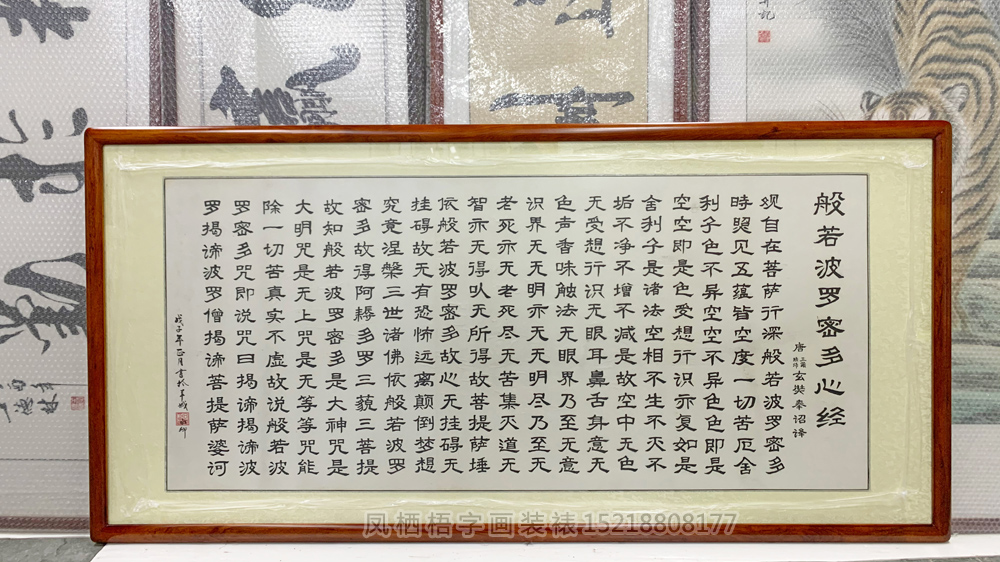 般若波罗密多心经
唐三藏法师玄奘奉诏译
观自在菩萨行深般若波罗密多
時照见五蕴皆空度一切苦厄舍
利子色不异空空不异色色即是
空空即是色受想行识亦复如是
舍利子是诸法空相不生不灭不
垢不净不增不减是故空中无色
无受想行识无眼耳鼻舌身意无
色声香味触法无眼界乃至无意
识界无无明亦无无明尽乃至无
老死亦无老死尽无苦集灭道无
智亦无得以无所得故菩提萨埵
依般若波罗密多故心无挂碍无
挂碍故无有恐怖远离颠倒梦想
究竟涅槃三世诸佛依般若波罗
密多故得阿耨多罗三藐三菩提
故知般若波罗密多是大神咒是
大明咒是无上咒是无等等咒能
除一切苦真实不虚故说般若波
罗密多咒即说咒曰揭谛揭谛波
罗揭谛波罗僧揭谛菩提萨婆诃
戊子年正月书於羊城
凤栖梧字画装裱15218808177